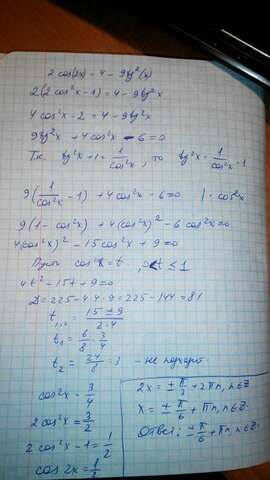 2 cos(2x) = 4 - 9tg²(x)
2(2cos²x-1) = 4-9tg²x
4cos²x-2 = 4-9tg²x
9tg²x +4cos²x -6=0
Т.к. tg²x+1 = 1/cos²x, то tg²x = 1/cos²x -1
9(1/cos²x -1) +4cos²x -6=0 | · cos²x
9(1-cos²x) +4(cos²x)² -6cos²x=0
4(cos²x)² -15cos²x +9=0
Пусть cos²x=t, t ≤ 1
4t²-15t+9=0
D=225-4·4·9=225-144=81
t₁,₂ = (15±9)/(2·4)
t₁ = 6/8 = 3/4
t₂ = 24/8 = 3 - не подходит.
cos²x = 3/4
2cos²x = 3/2
2cos²x-1 = 1/2
cos 2x = 1/2
2x = ± π/3 + 2πn, n∈Z
x = ± π/6 + πn, n∈Z
Ответ: ± π/6 + πn, n∈Z